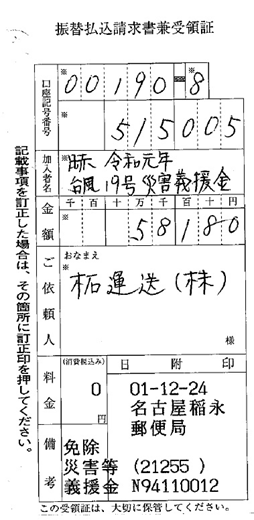 振替払込請求書兼受領証
口座記号番号
※ 00190-8
※ 515005
加入者名
※ 日赤 令和元年
台風19号災害義援金
金額
千 百 十 万 千 百 十 円
※ 58180
ご依頼人
おなまえ
※
柘運送(株)
様
料金
(消費税込み)
0
円
日附印
01-12-24
名古屋稲永
郵便局
備考
免除
災害等 (21255 )
義援金 N94110012
記載事項を訂正した場合は、その箇所に訂正印を押してください。
この受領証は、大切に保管してください。